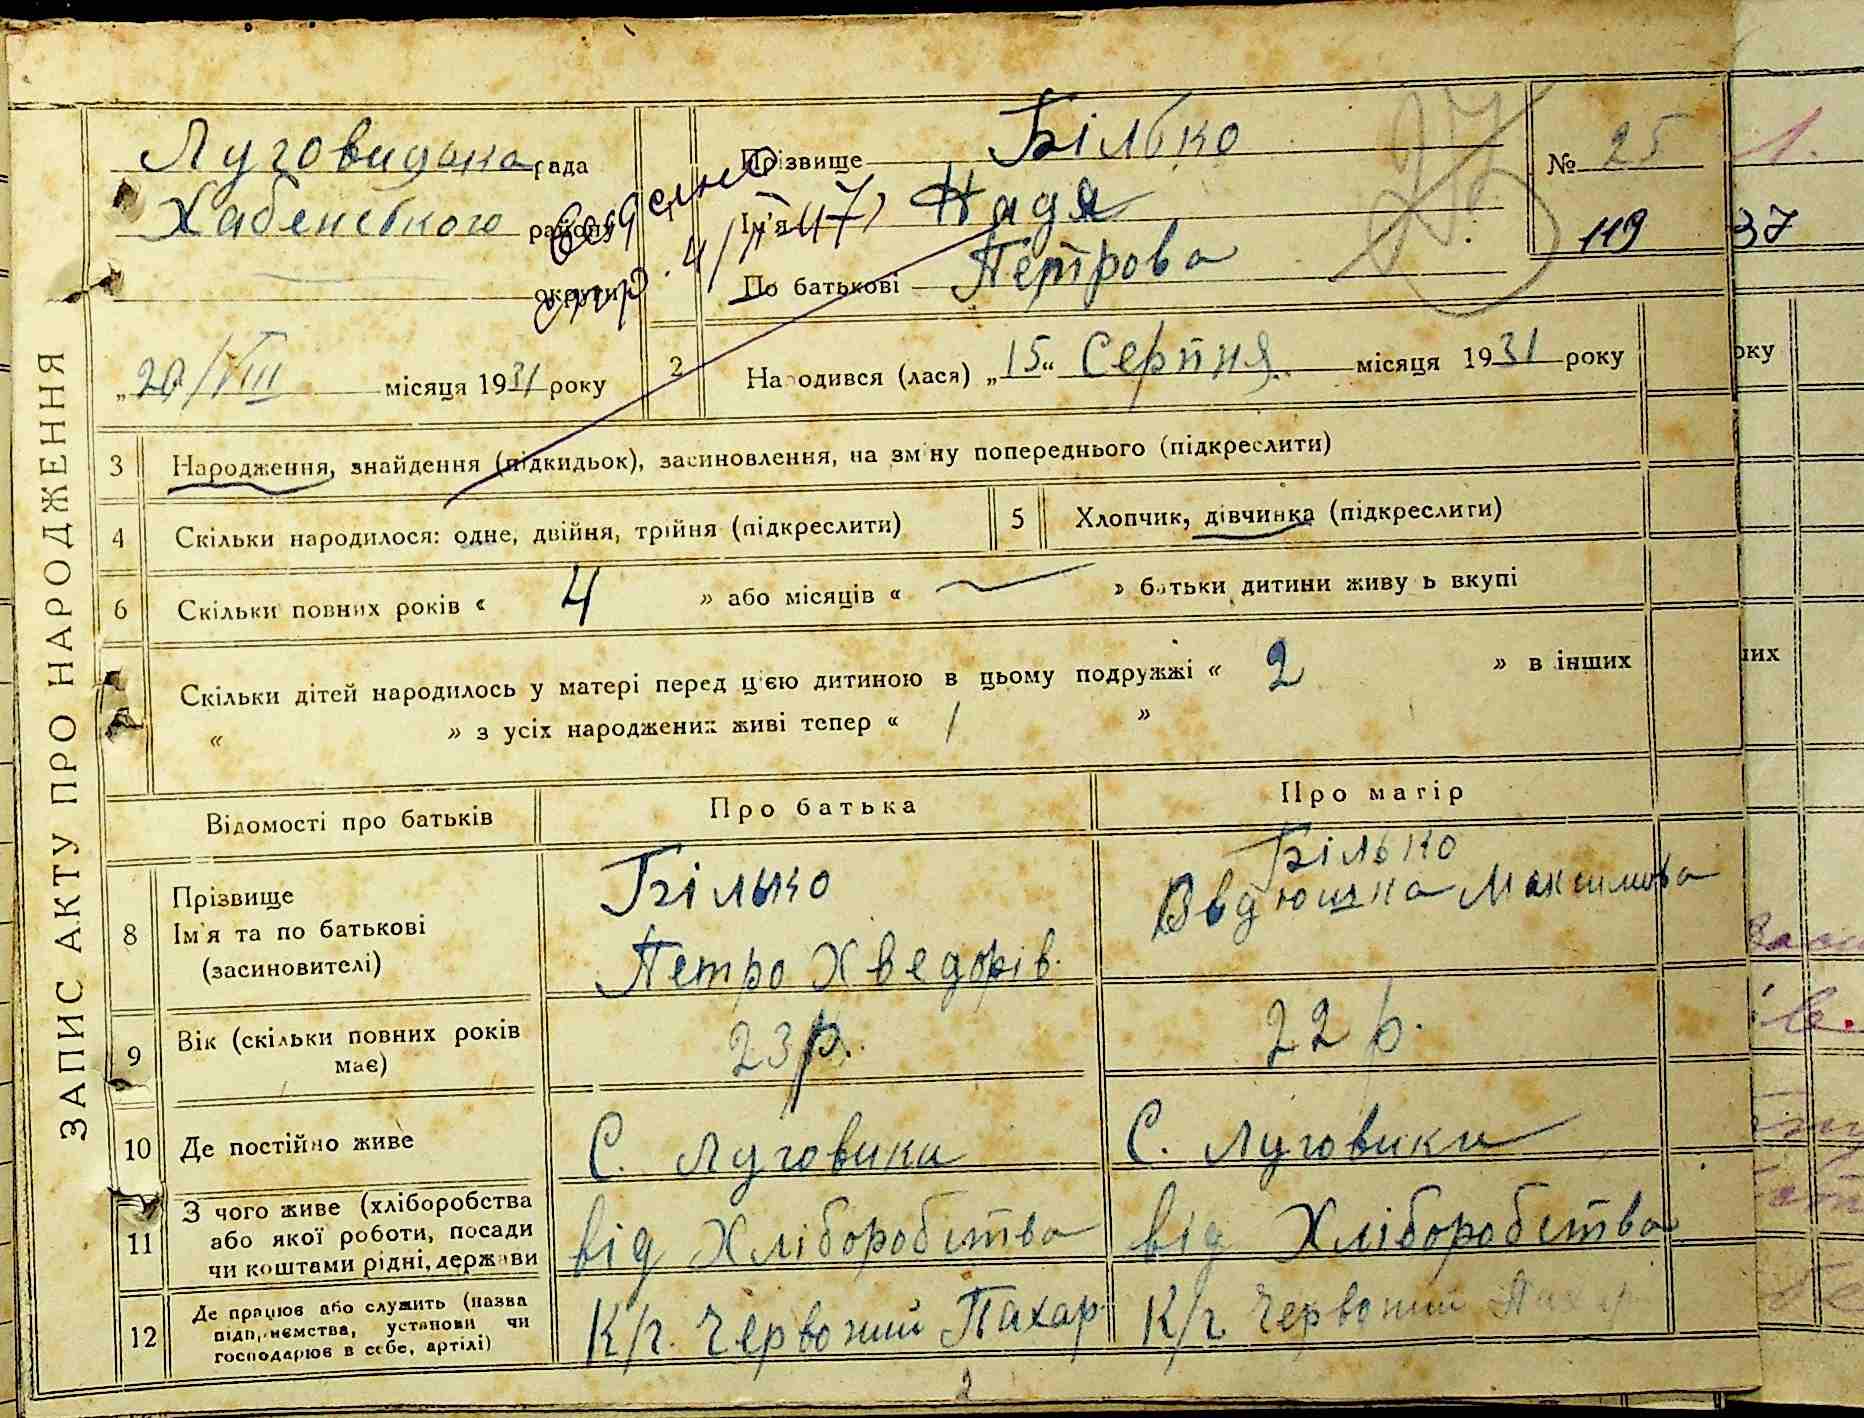 ЗАПИС АКТУ ПРО НАРОДЖЕННЯ
Луговицька рада
Хабенського району
округи
„20/VIII місяця 1931 року
Прізвище Білько
Ім'я Надя
По батькові Петрова
№ 25
119
37
1.
2 Народився (лася) „15“ Серпня місяця 1931 року
оку
3 Народження, знайдення (підкидьок), засиновлення, на зміну попереднього (підкреслити)
4 Скільки народилося: одне, двійня, трійня (підкреслити)
5 Хлопчик, дівчинка (підкреслити)
6 Скільки повних років « 4 » або місяців « — » батьки дитини живуть вкупі
Скільки дітей народилось у матері перед цією дитиною в цьому подружжі « 2 » в інших
« » з усіх народжених живі тепер « 1 »
их
Відомості про батьків Про батька Про матір
8 Прізвище
Ім'я та по батькові
(засиновителі)
Білько
Петро Хведорів.
Білько
Максимова
9 Вік (скільки повних років
має)
23 р. 22 р.
10 Де постійно живе С. Луговики С. Луговики
11 З чого живе (хліборобства
або якої роботи, посади
чи коштами рідні, держави
від Хліборобства від Хліборобства
12 Де працює або служить (назва
підприємства, установи чи
господарює в себе, артілі)
К/г. Червоний Пахар К/г. Червоний Пахар
2